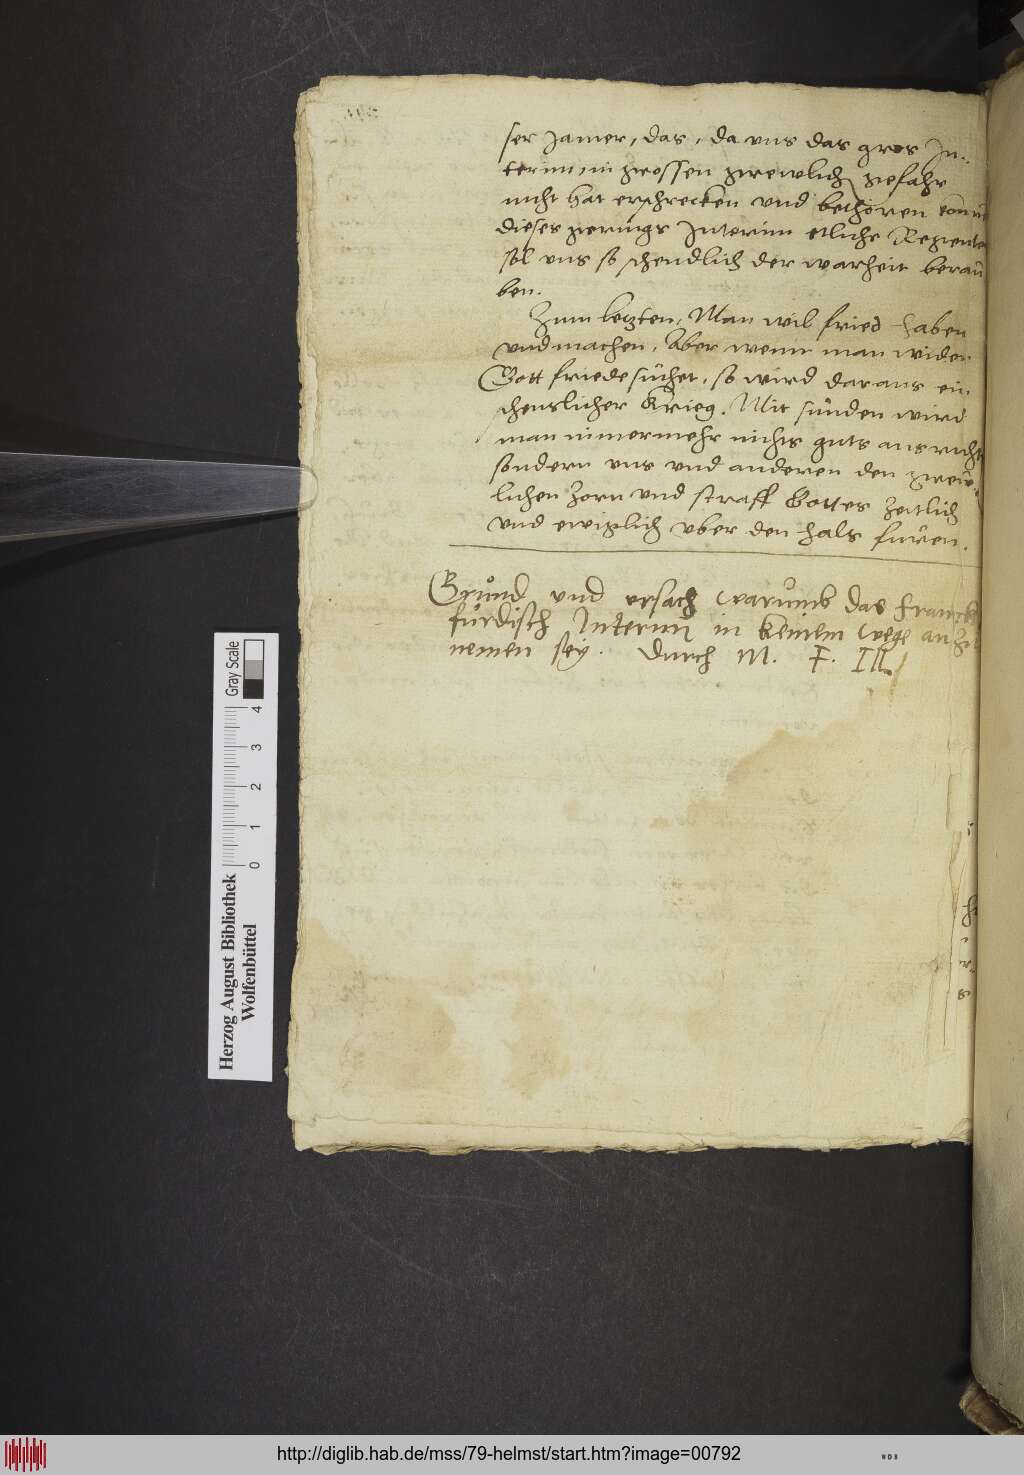 ser Jamer, das, da uns das gros In-
terim mi grossen grewlich gefahr
nicht hat erschrecken und bethoren
dieses gerings Interim etliche Regenten
sol uns so schendlich der warheit berau
ben.
Zum letzten, Man wil fried haben
und machen. Aber wenn man wider
Gott friede suchet, so wird daraus ein
schenslicher Krieg. Mit sunden wird
man nimermehr nichts guts ausricht
sondern uns und anderen den grew-
lichen Zorn und straff Gottes Zeitlich
und ewiglich uber den hals furen.
Grund und ursach warumb das Franck
furdisch Interim in keinem wege an Zu
nemen sey. Durch M. F. Ill
Herzog August Bibliothek
Wolfenbüttel
0 1 2 3 4
Gray Scale
http://diglib.hab.de/mss/79-helmst/start.htm?image=00792
WDB